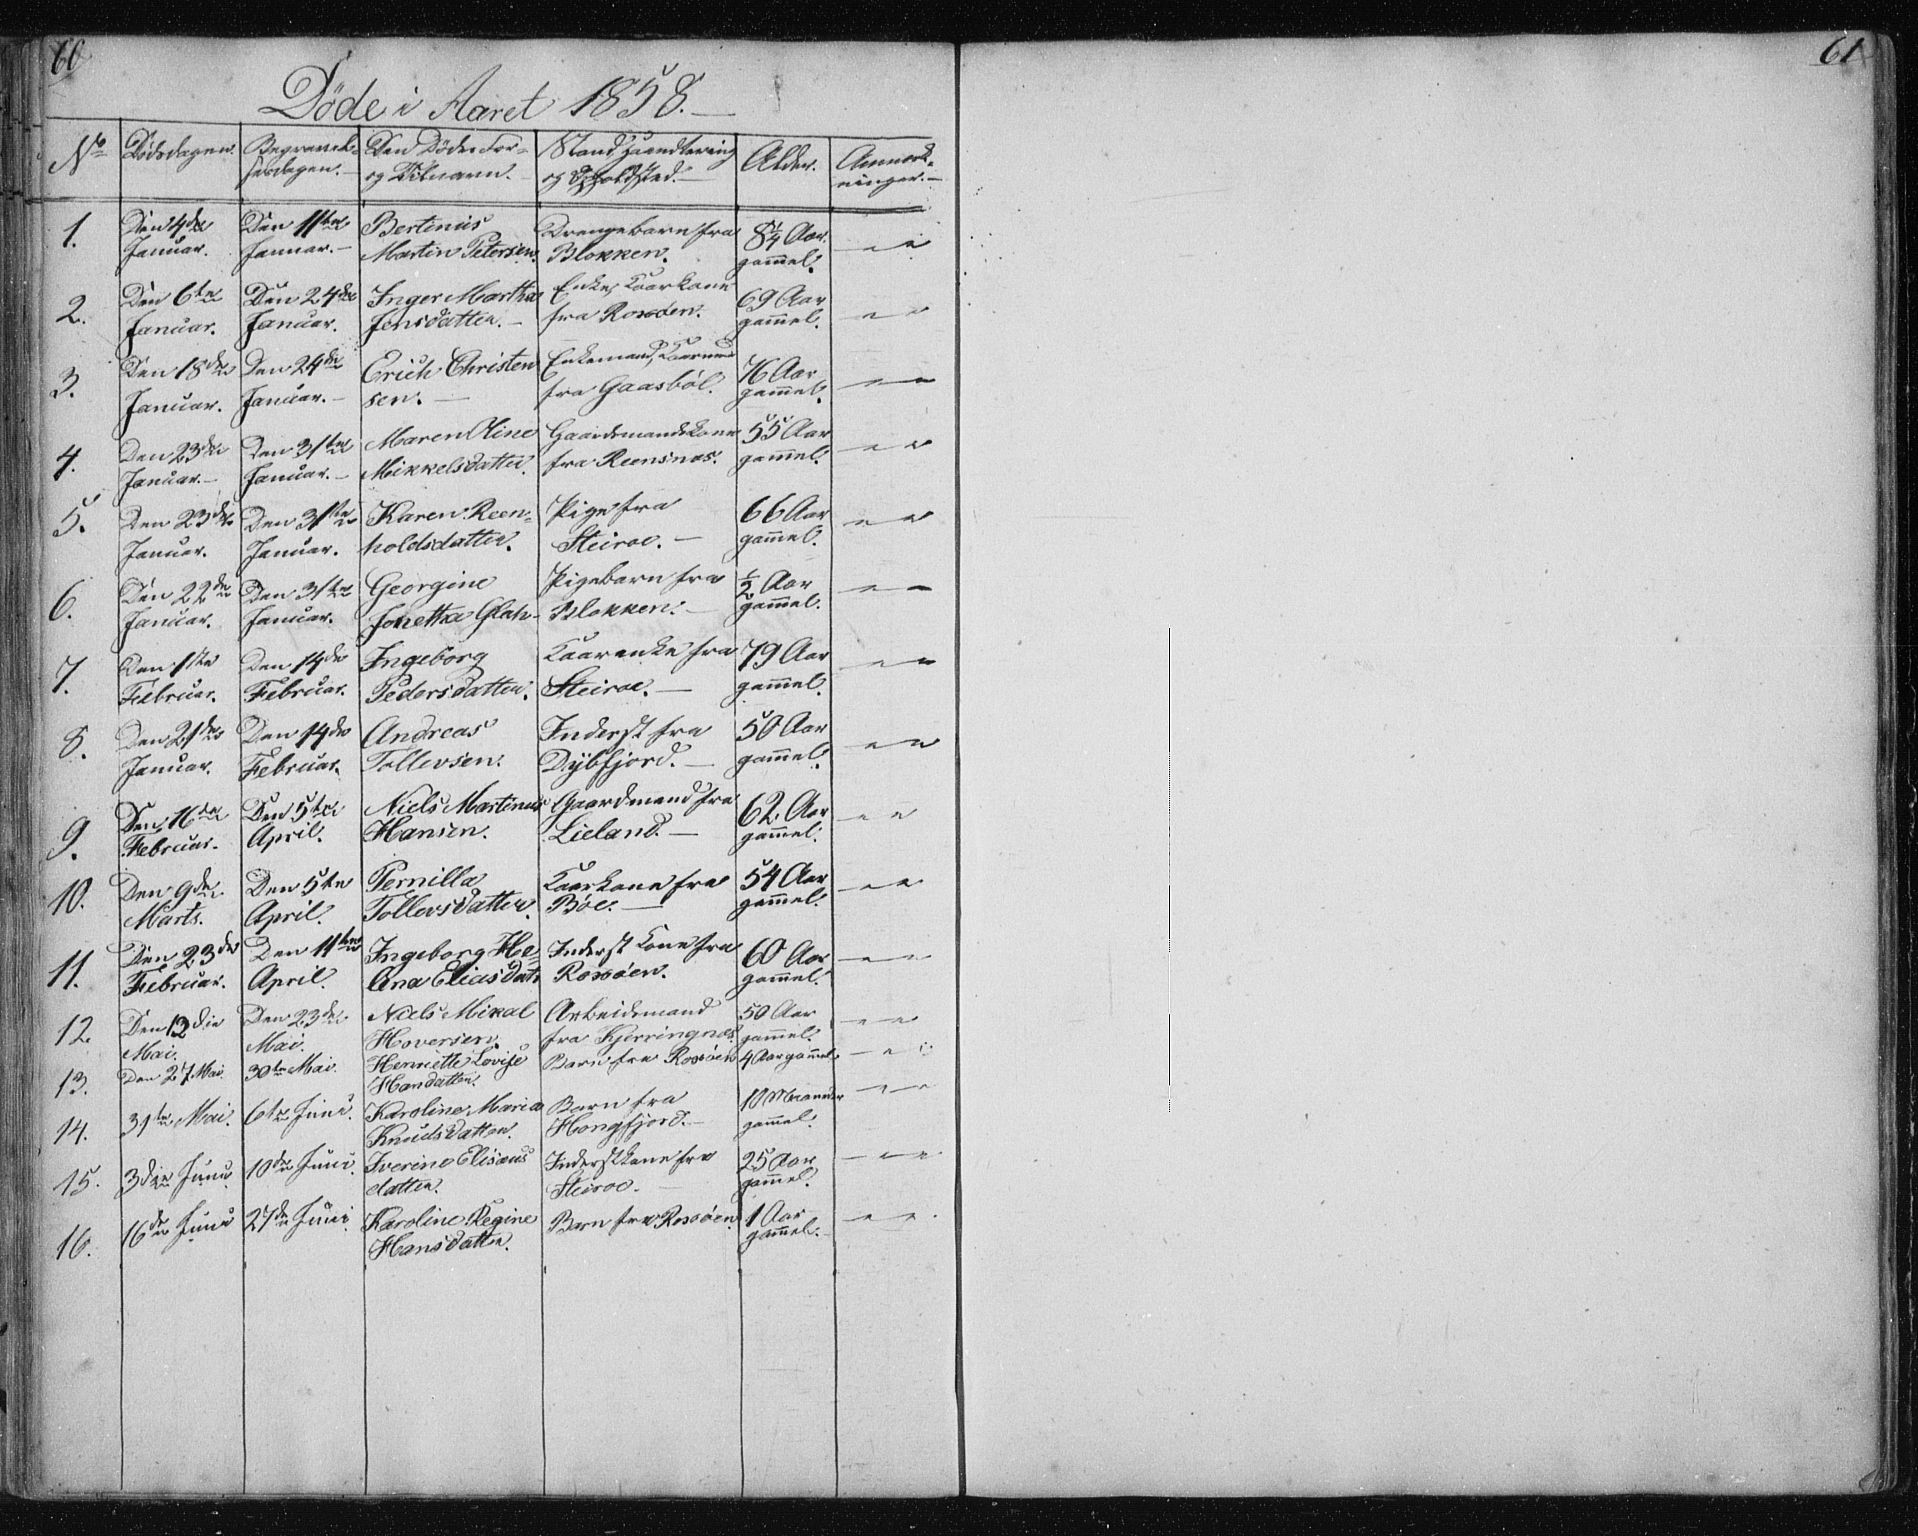 60
61
Døde i Aaret 1858.
No
Dødsdagen.
Begravel-
sesdagen.
Den Dødes For-
og Tilnavn.
Stand Haandtering
og Opholdsted.
Alder.
Anmærk-
ninger.
1. Den 4de Den 11te Bertinus Drengebarn fra 8¼ Aar
Januar. Januar. Martin Petersen. Blokken. gammel. " "
2. Den 6te Den 24de Inger Martha Enke, Kaarkone 69 Aar
Januar. Januar. Jensdatter. fra Roxøen. gammel. " "
3. Den 18de Den 24de Erich Christen Enkemand, 76 Aar
Januar. Januar. sen. fra Gaasbøl. gammel. " "
4. Den 23de Den 31te Maren Oline Gaardmandskone 55 Aar
Januar. Januar. Mikkelsdatter. fra Reensnæs. gammel. " "
5. Den 23de Den 31te Karen Reen- Pige fra 66 Aar
Januar. Januar. holdsdatter. Steiroe. gammel. " "
6. Den 22de Den 31te Georgine Pigebarn fra ½ Aar
Januar. Januar. Jonetha Glah Blokken. gammel. " "
7. Den 1ste Den 14de Ingeborg Kaarenke fra 79 Aar
Februar. Februar. Pedersdatter. Steiroe. gammel. " "
8. Den 21de Den 14de Andreas Inderst fra 50 Aar
Januar. Februar. Tollevsen. Dybfjord. gammel. " "
9. Den 16de Den 5te Niels Martinus Gaardmand fra 62 Aar
Februar. April. Hansen. Lieland. gammel. " "
10. Den 9de Den 5te Pernilla Kaarkone fra 54 Aar
Marts. April. Tollevsdatter. Bøe. gammel. " "
11. Den 23de Den 11te Ingeborg He- Inderst Kone fra 60 Aar
Februar. April. lena Eliasdatr Roxøen. gammel. " "
12. Den 12die Den 23de Niels Mikal Arbeidsmand 50 Aar
Mai. Mai. Hoversen. fra Kjerringnes. gammel. " "
13. Den 27 Mai. 30te Mai. Henriette Lovise Barn fra Roxøen 4 Aar gammel " "
Handatter.
14. 31te Mai. 6te Juni. Karoline Maria Barn fra 10 Maaneder
Knudsdatter. Hongfjord. gammel. " "
15. 3die Juni. 10de Juni. Iverine Elisæus Inderstkone fra 25 Aar
datter. Steiroe. gammel. " "
16. 16de Juni 27de Juni. Karoline Regine Barn fra Roxøen. 1 Aar
Hansdatter. gammel. " "